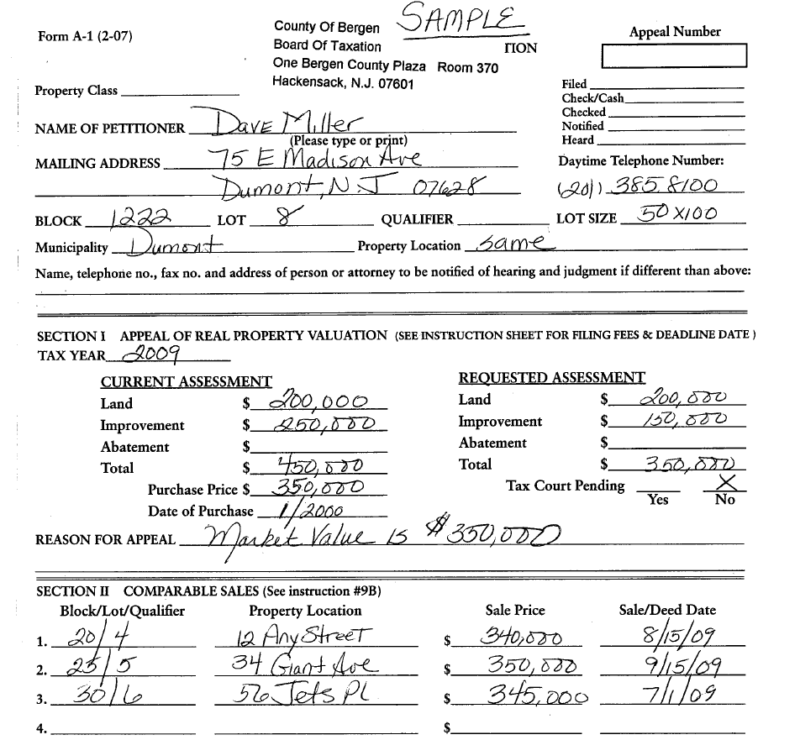 SAMPLE
Form A-1 (2-07)
County Of Bergen
Board Of Taxation
TION
One Bergen County Plaza Room 370
Hackensack, N.J. 07601
Appeal Number
Property Class
Filed
Check/Cash
Checked
Notified
Heard
NAME OF PETITIONER Dave Miller
(Please type or print)
MAILING ADDRESS 75 E Madison Ave
Dumont, N.J 07628
Daytime Telephone Number:
(201) 385 8100
BLOCK 1222 LOT 8 QUALIFIER LOT SIZE 50 X100
Municipality Dumont Property Location same
Name, telephone no., fax no. and address of person or attorney to be notified of hearing and judgment if different than above:
SECTION I APPEAL OF REAL PROPERTY VALUATION (SEE INSTRUCTION SHEET FOR FILING FEES & DEADLINE DATE )
TAX YEAR 2009
CURRENT ASSESSMENT
Land $ 200,000
Improvement $ 250,000
Abatement $
Total $ 450,000
Purchase Price $ 350,000
Date of Purchase 1/2000
REQUESTED ASSESSMENT
Land $ 200,000
Improvement $ 150,000
Abatement $
Total $ 350,000
Tax Court Pending Yes X No
REASON FOR APPEAL Market Value is $350,000
SECTION II COMPARABLE SALES (See instruction #9B)
Block/Lot/Qualifier Property Location Sale Price Sale/Deed Date
1. 20/4 12 Any Street $ 340,000 8/15/09
2. 25/5 34 Giant Ave $ 350,000 9/15/09
3. 30/6 56 Jets Pl $ 345,000 7/1/09
4. $